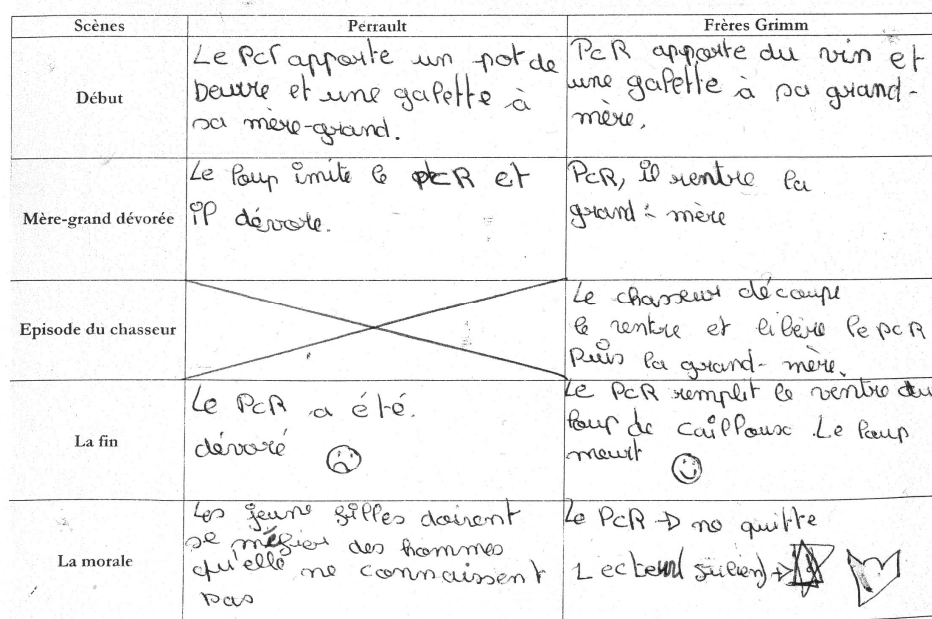 Scènes Perrault Frères Grimm
Début
Le PcR apporte un pot de
beurre et une galette à
sa mère-grand.
PcR apporte du vin et
une galette à sa grand-
mère.
Mère-grand dévorée
Le loup imite le PcR et
il dévore.
PcR, il rentre la
grand-mère
Episode du chasseur
Le chasseur découpe
le ventre et libère le PcR
Puis la grand-mère.
La fin
Le PcR a été.
dévoré
Le PcR remplit le ventre du
loup de cailloux. Le loup
meurt
La morale
Les jeune filles doivent
se méfier des hommes
qu'elle ne connaissent
pas
Le PcR → no quitte